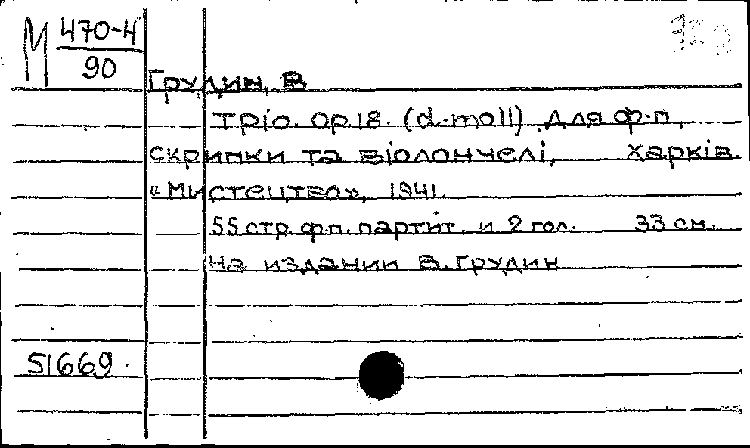 М 470-4
90
Грудин, В
Тріо. Op.18. (d-moll) для ф-п,
скрипки та віолончелі, Харків.
«Мистецтво», 1941.
55 стр. ф.п. партит. и 2 гол. 33 см.
На издании В. Грудин
51669.